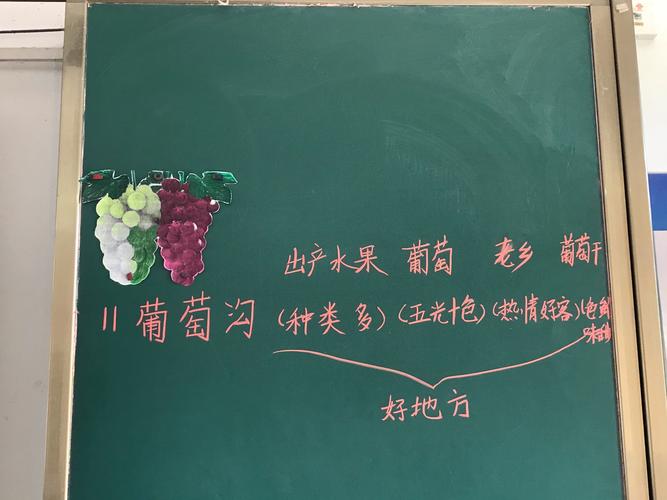 出产水果 葡萄 老乡 葡萄干
11 葡萄沟 (种类多) (五光十色) (热情好客) (色鲜
味甜)
好地方